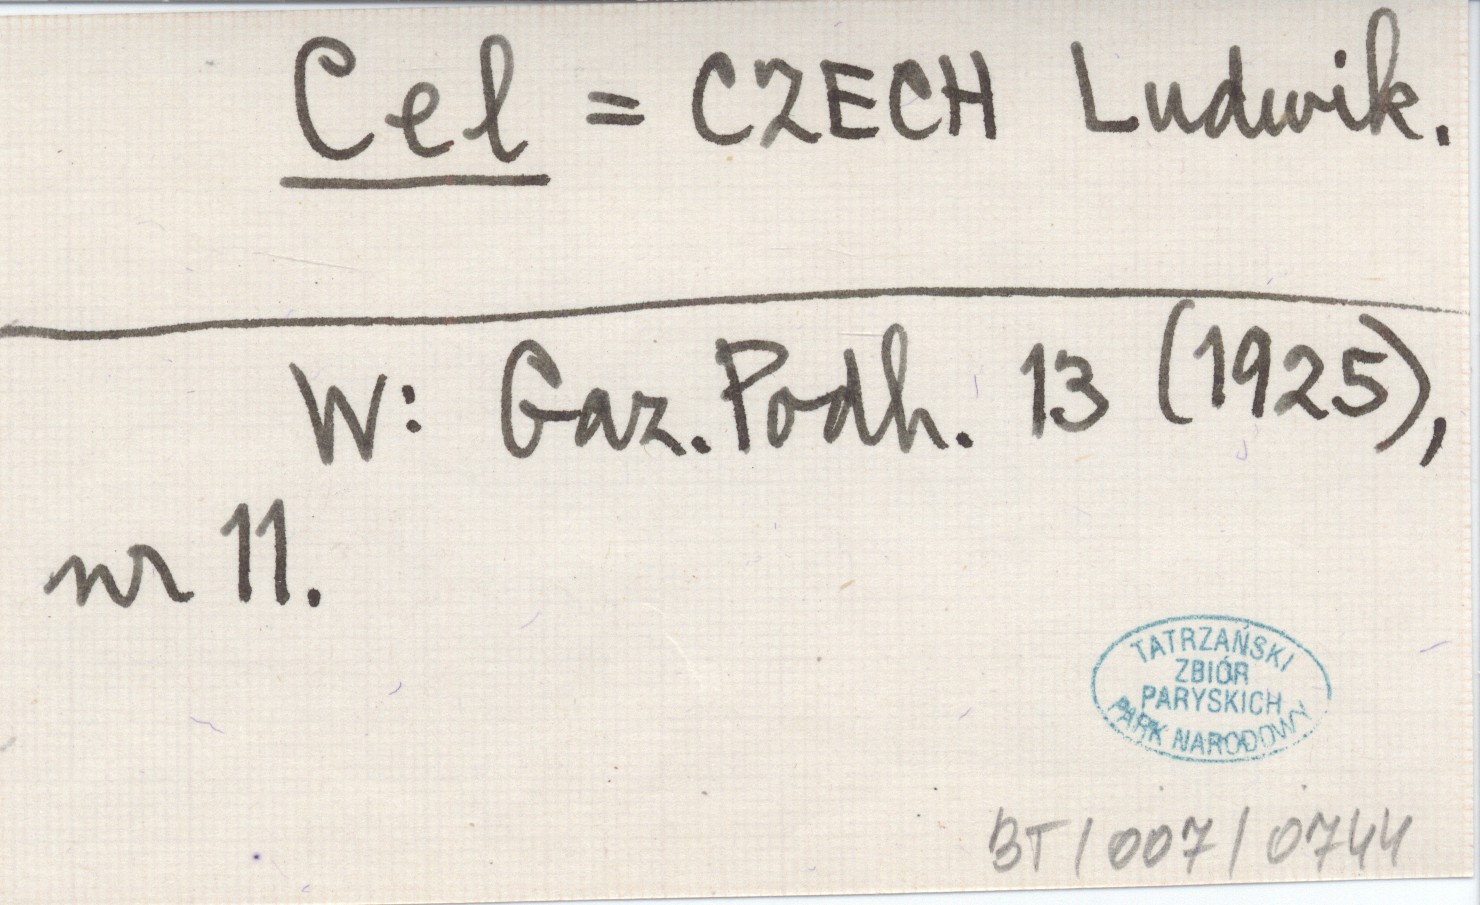 Cel = CZECH Ludwik.
W: Gaz. Podh. 13 (1925),
nr 11.
TATRZAŃSKI
ZBIÓR
PARYSKICH
PARK NARODOWY
BT/007/0744